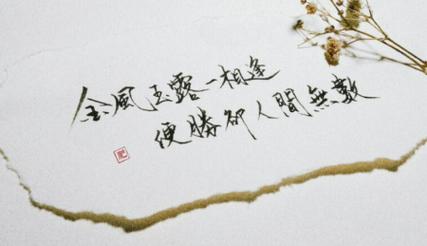 金風玉露一相逢
便勝卻人間無數